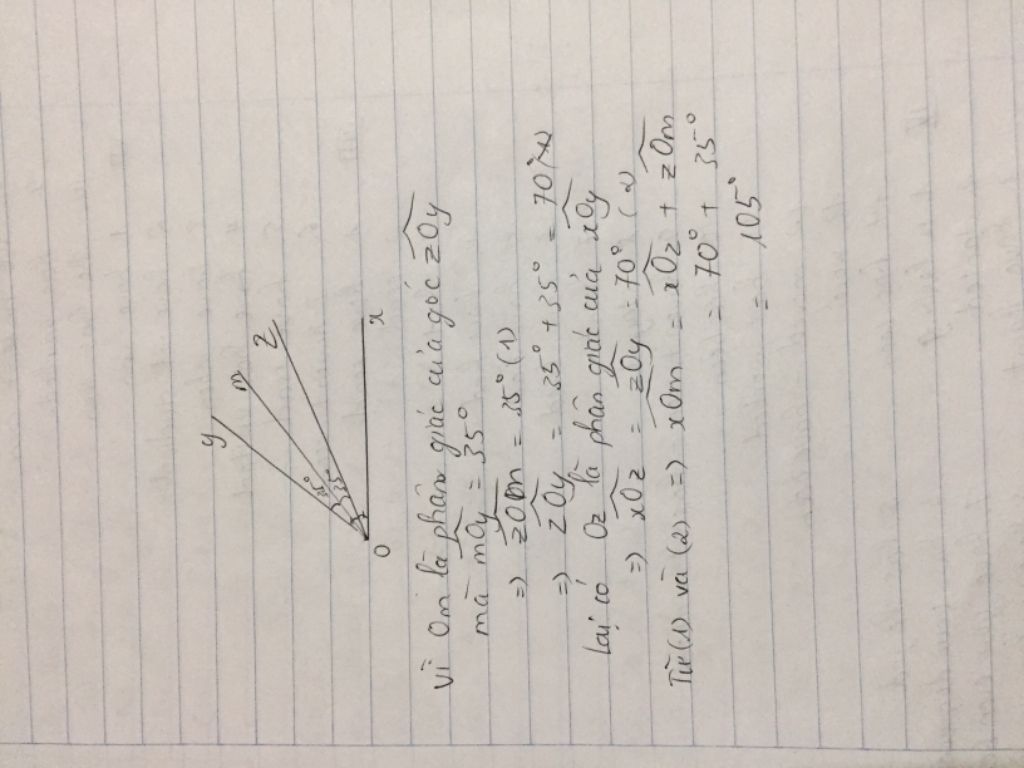 y
m
z
35°
35°
O
x
Vì Om là phân giác của góc zOy
mà mOy = 35°
=) zOm = 35° (1)
=) zOy = 35° + 35° = 70°
lại có Oz là phân giác của xOy
=) xOz = zOy = 70° (2)
Từ (1) và (2) =) xOm = xOz + zOm
= 70° + 35°
= 105°